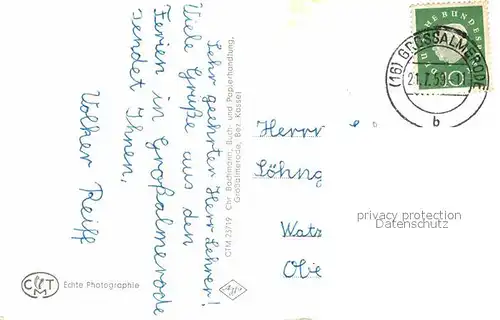 Sehr geehrter Herr Lehrer!
Viele Grüße aus den
Ferien in Großalmerode
sendet Ihnen,
Volker Reiff
CTM 23719 Chr. Bachmann, Buch- und Papierhandlung,
Großalmerode, Bez. Kassel
CTM
Echte Photographie
Agfa
(16) GROSSALMERODE
b
Herrn
Löhng
Watz
Obe
privacy protection
Datenschutz